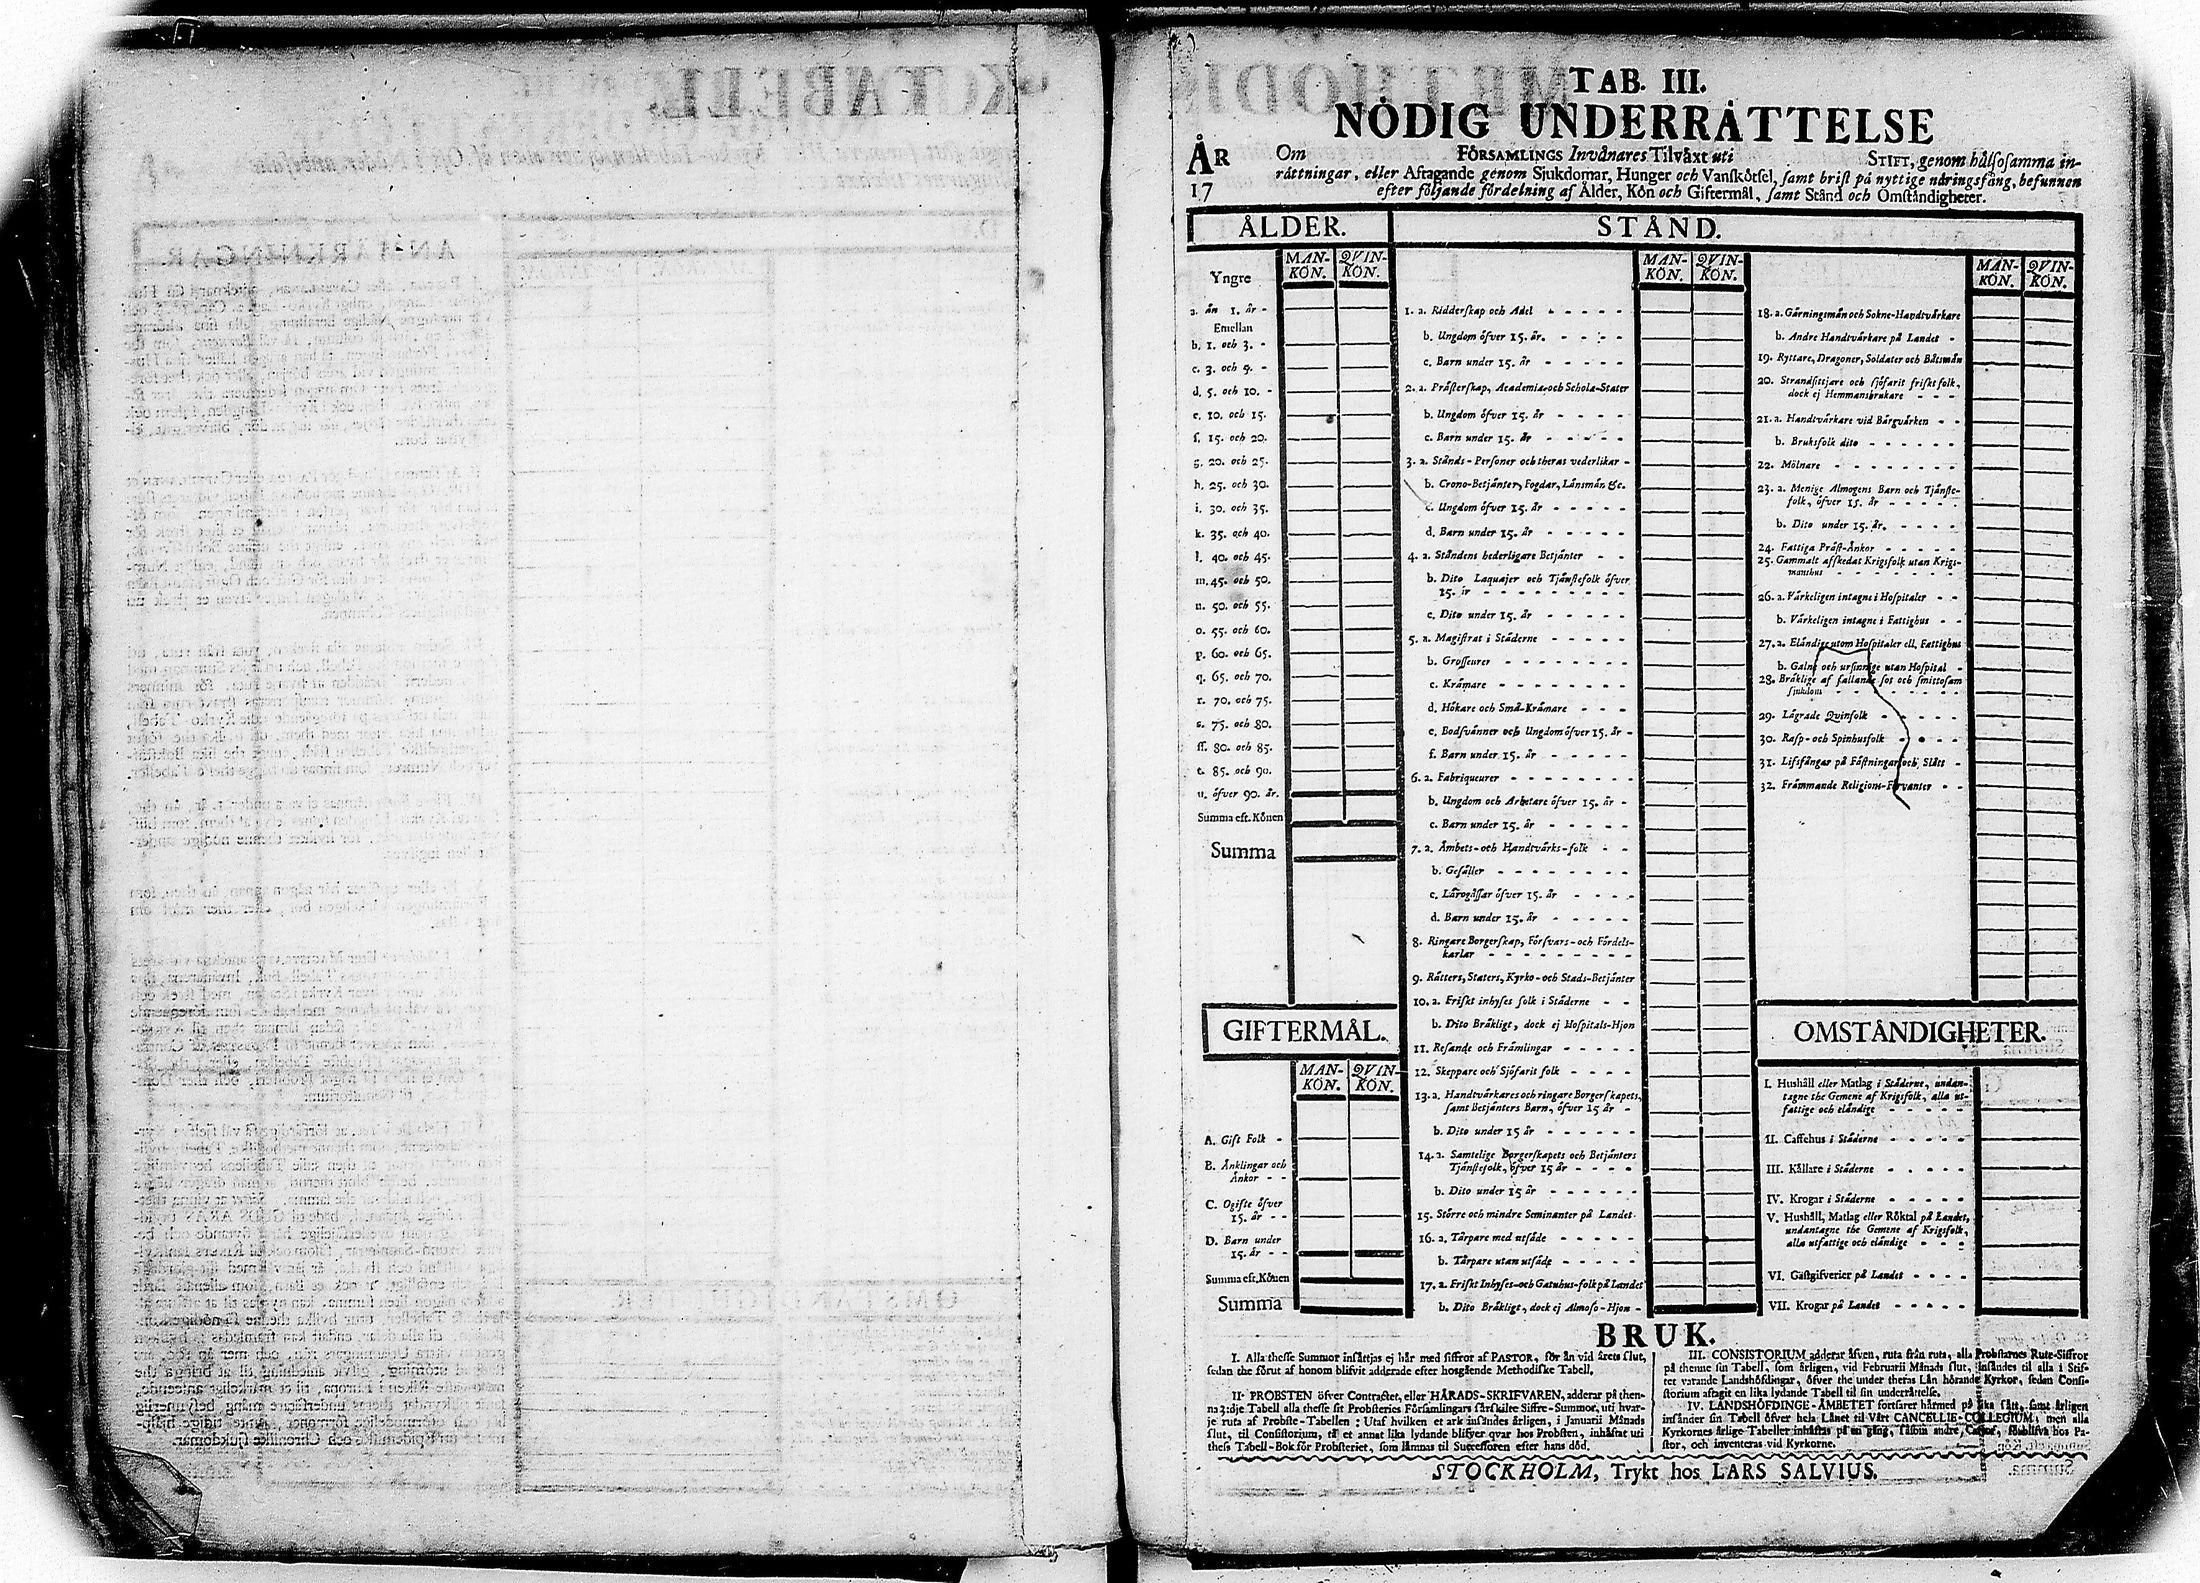 TAB. III.
NÖDIG UNDERRÄTTELSE
ÅR
17
Om FÖRSAMLINGS Invånares Tilväxt uti STIFT, genom hälsosamma in-
rättningar, eller Aftagande genom Sjukdomar, Hunger och Vanskötsel, samt brist på nyttige näringsfång, befunnen
efter följande fördelning af Ålder, Kön och Giftermål, samt Stånd och Omständigheter.
ÅLDER.
MAN-KÖN. QVIN-KÖN.
Yngre
a. än 1. år -
Emellan
b. 1. och 3. -
c. 3. och 5. -
d. 5. och 10. -
e. 10. och 15.
f. 15. och 20.
g. 20. och 25.
h. 25. och 30.
i. 30. och 35.
k. 35. och 40.
l. 40. och 45.
m. 45. och 50.
n. 50. och 55.
o. 55. och 60.
p. 60. och 65.
q. 65. och 70.
r. 70. och 75.
s. 75. och 80.
ff. 80. och 85.
t. 85. och 90.
u. öfver 90. år.
Summa eft. Könen
Summa
GIFTERMÅL.
MAN-KÖN. QVIN-KÖN.
A. Gift Folk -
B. Änklingar och
Änkor - -
C. Ogifte öfver
15. år - -
D. Barn under
15. år - -
Summa eft. Könen
Summa
STÅND.
MAN-KÖN. QVIN-KÖN.
1. a. Ridderskap och Adel
b. Ungdom öfver 15. år.
c. Barn under 15. år
2. a. Prästerskap, Academiæ-och Scholæ-Stater
b. Ungdom öfver 15. år
c. Barn under 15. år
3. a. Stånds-Personer och theras vederlikar -
b. Crono-Betjänter, Fogdar, Länsmän &c.
c. Ungdom öfver 15. år
d. Barn under 15. år
4. a. Ståndens hederligare Betjänter
b. Dito Laquajer och Tjänstefolk öfver
15. år
c. Dito under 15. år
5. a. Magistrat i Städerne
b. Grosseurer
c. Krämare
d. Hökare och Små-Krämare
e. Bodsvänner och Ungdom öfver 15. år -
f. Barn under 15. år
6. a. Fabriqueurer
b. Ungdom och Arbetare öfver 15. år -
c. Barn under 15. år
7. a. Ämbets-och Handtvärks-folk
b. Gesäller
c. Lärogåssar öfver 15. år
d. Barn under 15. år
8. Ringare Borgerskap, Försvars-och Fördels-
karlar
9. Rätters, Staters, Kyrko-och Stads-Betjänter
10. a. Friskt inhyses folk i Städerne
b. Dito Bräkligt, dock ej Hospitals-Hjon
11. Resande och Främlingar
12. Skeppare och Sjöfarit folk
13. a. Handtvärkares och ringare Borgerskapets,
samt Betjänters Barn, öfver 15 år -
b. Dito under 15 år
14. a. Samtelige Borgerskapets och Betjänters
Tjänstefolk, öfver 15 år
b. Dito under 15 år
15. Större och mindre Seminanter på Landet
16. a. Tärpare med utsäde
b. Tärpare utan utsäde
17. a. Friskt Inhyses-och Gatuhus-folk på Landet
b. Dito Bräkligt, dock ej Almoso-Hjon -
MAN-KÖN. QVIN-KÖN.
18. a. Gärningsmän och Sokne-Handtvärkare
b. Andre Handtvärkare på Landet -
19. Ryttare, Dragoner, Soldater och Båtsmän
20. Strandsittjare och sjöfarit friskt folk,
dock ej Hemmansbrukare
21. a. Handtvärkare vid Bärgvärken
b. Bruksfolk dito
22. Mölnare
23. a. Menige Almogens Barn och Tjänste-
folk, öfver 15. år
b. Dito under 15. år.
24. Fattiga Präst-Änkor
25. Gammalt afskedat Krigsfolk utan Krigs-
manshus
26. a. Värkeligen intagne i Hospitaler
b. Värkeligen intagne i Fattighus
27. a. Eländige utom Hospitaler ell. Fattighus
b. Galne och ursinnige utan Hospital -
28. Bräklige af fallande sot och smittosam
sjukdom
29. Lägrade Qvinfolk
30. Rasp-och Spinhusfolk
31. Lifsfångar på Fästningar och Slått -
32. Främmande Religions-Förvanter
OMSTÄNDIGHETER.
I. Hushåll eller Matlag i Städerne, undan-
tagne the Gemene af Krigsfolk, alla ut-
fattige och eländige
II. Caffehus i Städerne
III. Källare i Städerne
IV. Krogar i Städerne
V. Hushåll, Matlag eller Röktal på Landet,
undantagne the Gemene af Krigsfolk,
alla utfattige och eländige
VI. Gästgifverier på Landet
VII. Krogar på Landet
BRUK.
I. Alla thesse Summor insättjas ej här med siffror af PASTOR, för än vid årets slut,
sedan the förut af honom blifvit adderade efter hosgående Methodiske Tabell.
II. PROBSTEN öfver Contractet, eller HÄRADS-SKRIFVAREN, adderar på then-
na 3:dje Tabell alla thesse sit Probsteries Församlingars särskilte Siffre-Summor, uti hvar-
je ruta af Probste-Tabellen: Utaf hvilken et ark insändes årligen, i Januarii Månads
slut, til Consistorium, et annat lika lydande blifver qvar hos Probsten, inhäftat uti
thess Tabell-Bok för Probsteriet, som lämnas til Successoren efter hans död.
III. CONSISTORIUM adderar äfven, ruta från ruta, alla Probstarnes Rute-Siffror
på thenne sin Tabell, som årligen, vid Februarii Månads slut, insändes til alla i Stif-
tet varande Landshöfdingar, öfver the under theras Län hörande Kyrkor, sedan Consi-
storium aftagit en lika lydande Tabell til sin underrättelse.
IV. LANDSHÖFDINGE-ÄMBETET fortfarer härmed på lika sätt, samt årligen
insänder sin Tabell öfver hela Länet til Vårt CANCELLIE-COLLEGIUM; men alla
Kyrkornes årlige Tabeller inhäftas på en gång, såsom andre, förblifva hos Pa-
stor, och inventeras vid Kyrkorne.
STOCKHOLM, Trykt hos LARS SALVIUS.